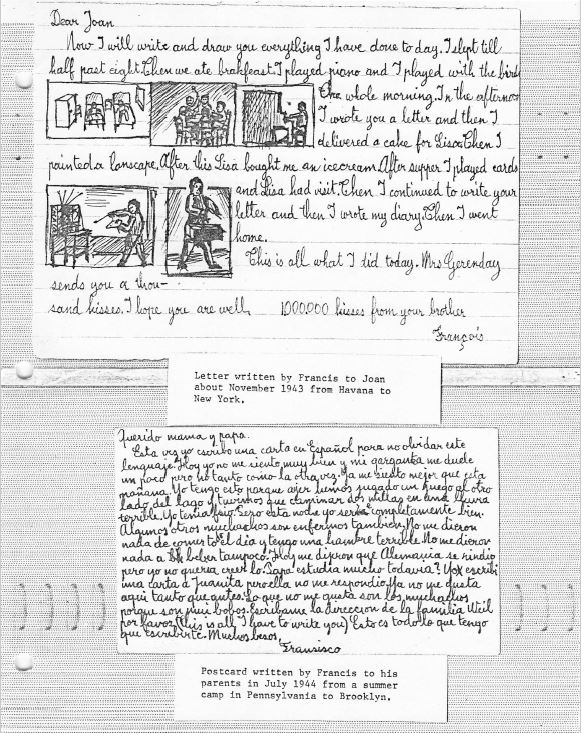 Dear Joan
Now I will write and draw you everything I have done to day. I slept till
half past eight. Then we ate brakfeast. I played piano and I played with the birds
the whole morning. In the afternoon
I wrote you a letter and then I
delivered a cake for Lisa. Then I
painted a lanscape. After this Lisa bought me an icecream. After supper I played cards
and Lisa had visit. Then I continued to write your
letter and then I wrote my diary. Then I went
home.
This is all what I did today. Mrs. Gerenday
sends you a thou-
sand kisses. I hope you are well. 1000.000 kisses from your brother
François
Letter written by Francis to Joan
about November 1943 from Havana to
New York.
Querido mama y papa.
Esta vez yo escribo una carta en Español para no olvidar este
lenguaje. Hoy yo no me siento muy bien y mi garganta me duele
un poco pero no tanto como la otra vez. Ya me siento mejor que esta
mañana. Yo tengo esto porque ayer hemos jugado un juego al otro
lado del lago y tuvimos que caminar dos millas en una lluvia
terrible. Yo tenia frio. Pero esta noche yo seré completamente bien.
Algunos otros muchachos son enfermos tambien. No me dieron
nada de comer to el dia y tengo una hambre terrible. No me dieron
nada a beber tampoco. Hoy me dijeron que Alemania se rindio
pero yo no queria creer lo. Papa estudia mucho todavia? Yo escribi
una carta a Juanita pero ella no me respondio. Ya no me gusta
aqui tanto que antes. Lo que no me gusta son los muchachos
porque son mui bobos. Escribame la direccion de la familia Weil
por favor. (this is all I have to write you) Esto es todo lo que tengo
que escribirte. Muchos besos,
Fransisco
Postcard written by Francis to his
parents in July 1944 from a summer
camp in Pennsylvania to Brooklyn.